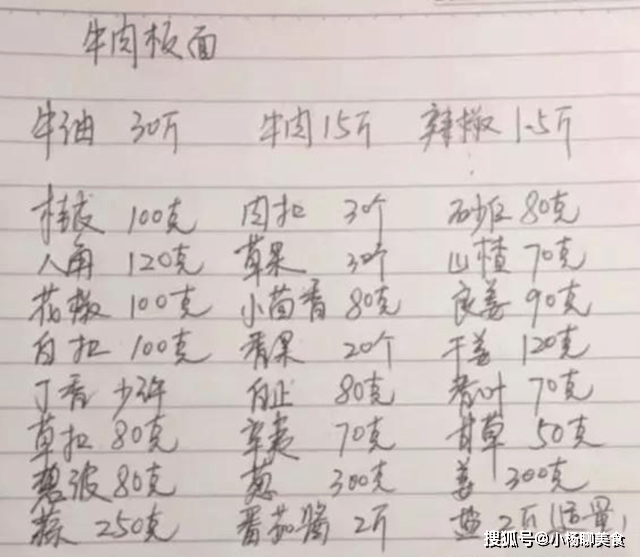 牛肉板面
牛油 30斤 牛肉 15斤 辣椒 1.5斤
桂皮 100克 肉扣 30个 砂仁 80克
八角 120克 草果 30个 山楂 70克
花椒 100克 小茴香 80克 良姜 90克
白扣 100克 香果 20个 干姜 120克
丁香 少许 白芷 80克 香叶 70克
草扣 80克 辛夷 70克 甘草 50克
荜波 80克 葱 300克 姜 300克
蒜 250克 番茄酱 2斤 盐 2斤 适量
搜狐号@小杨聊美食